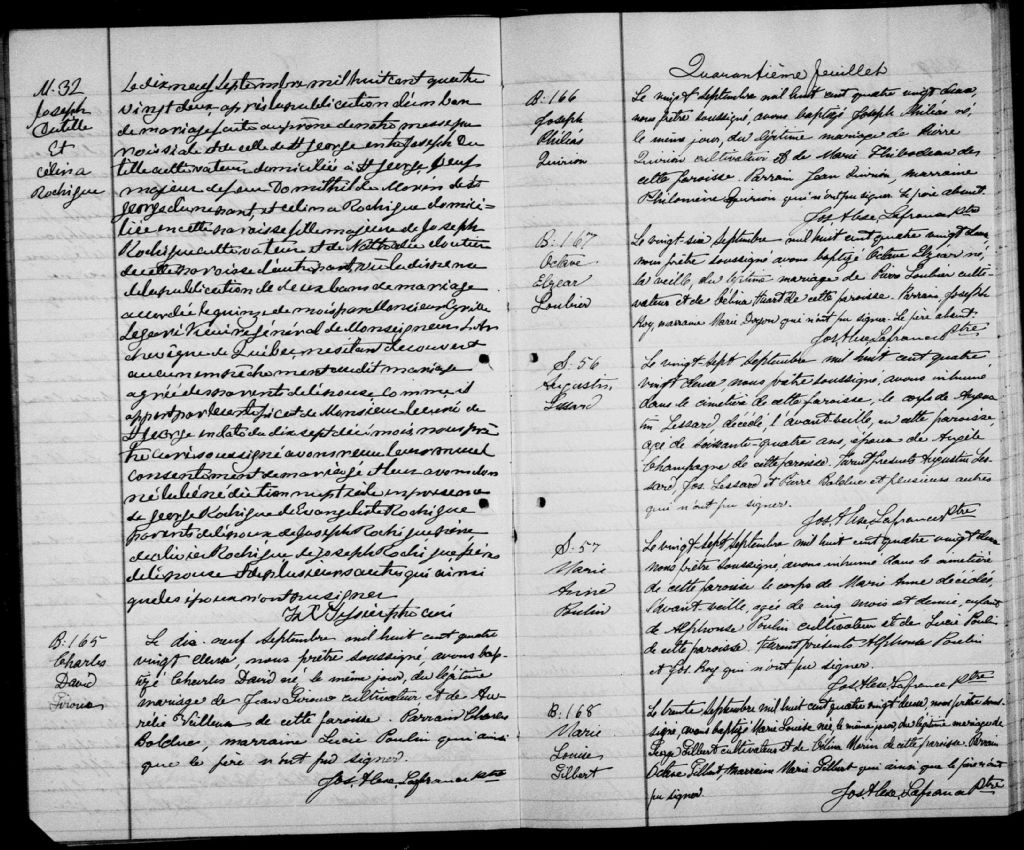 M. 32
Joseph
Cutille
Et
Célina
Rodrigue
Le dix neuf Septembre mil huit cent quatre
vingt deux, après la publication d'un ban
de mariage faite au prône de notre messe pa
roissiale et de celle de St George entre Joseph Cu
tille cultivateur domicilié à St George, veuf
majeur de feu Domithilde Morin de St
George d'une part, et Célina Rodrigue domici-
liée en cette paroisse fille majeure de Joseph
Rodrigue cultivateur et de Nathalie Cloutier
de cette paroisse d'autre part, vu la dispense
de la publication de deux bans de mariage
accordée le quinze de mois par Monsieur Cyrille
Legaré Vicaire Général de Monseigneur L'Ar
chevêque de Québec, ne s'étant découvert
aucun empêchement au dit mariage
agréé des parents de l'épouse comme il
appert par le certificat de Monsieur le curé de
St George en date du dix sept de ce mois, nous prê
tre curé soussigné avons reçu leur mutuel
consentement de mariage et leur avons don
né la bénédiction nuptiale en présence
de George Rodrigue de Evangeliste Rodrigue
parents de l'époux de Joseph Rodrigue père
de Olivier Rodrigue de Joseph Rodrigue frères
de l'épouse et de plusieurs autres qui ainsi
que les époux n'ont pu signer
ptre curé
B. 165
Charles
David
Giroux
Le dix-neuf Septembre mil huit cent quatre
vingt deux, nous prêtre soussigné, avons bap-
tizé Charles David né, le même jour, du légitime
mariage de Jean Giroux cultivateur et de Au-
rélie Villeux de cette paroisse. Parrain Charles
Bolduc, marraine Lucie Poulin qui ainsi
que le père n'ont pu signer.
Jos. Alex. Lafrance Ptre
Quarantième feuillet
B. 166
Joseph
Philias
Quirion
Le vingt septembre mil huit cent quatre vingt deux,
nous prêtre soussigné, avons baptizé Joseph Philias né,
le même jour, du légitime mariage de Pierre
Quirion cultivateur et de Marie Thibodeau de
cette paroisse. Parrain Jean Quirion, marraine
Philomène Quirion qui n'ont pu signer. Le père absent.
Jos Alex. Lafrance Ptre
B. 167
Octave
Elzear
Loubier
Le vingt-six Septembre mil huit cent quatre vingt deux
nous prêtre soussigné avons baptizé Octave Elzéar né,
la veille, du légitime mariage de Pierre Loubier culti-
vateur et de Célina Huart de cette paroisse. Parrain, Joseph
Roy, marraine Marie Doyon qui n'ont pu signer. Le père absent.
Jos. Alex. Lafrance Ptre
S. 56
Augustin
Lessard
Le vingt-sept Septembre mil huit cent quatre
vingt deux nous prêtre soussigné, avons inhumé
dans le cimetière de cette paroisse, le corps de Augus
tin Lessard, décédé, l'avant-veille, en cette paroisse,
agé de soixante-quatre ans, époux de Angèle
Champagne de cette paroisse. Furent présents Augustin Les-
sard, Jos. Lessard et Pierre Bolduc et plusieurs autres
qui n'ont pu signer.
Jos Alex. Lafrance Ptre
S. 57
Marie
Anne
Poulin
Le vingt-sept Septembre mil huit cent quatre vingt deux
nous prêtre soussigné, avons inhumé dans le cimetière
de cette paroisse le corps de Marie Anne décédée,
l'avant-veille, agée de cinq mois et demie, enfant
de Alphonse Poulin cultivateur et de Lucie Poulin
de cette paroisse. Furent présents Alphonse Poulin
et Jos. Roy qui n'ont pu signer.
Jos. Alex. Lafrance Ptre
B. 168
Marie
Louise
Gilbert
Le trente Septembre mil huit cent quatre vingt deux, nous prêtre sous-
signé, avons baptizé Marie Louise née, le même jour, du légitime mariage de
George Gilbert cultivateur et de Célina Morin de cette paroisse. Parrain
Octave Gilbert, marraine Marie Gilbert qui ainsi que le père n'ont
pu signer.
Jos. Alex. Lafrance Ptre